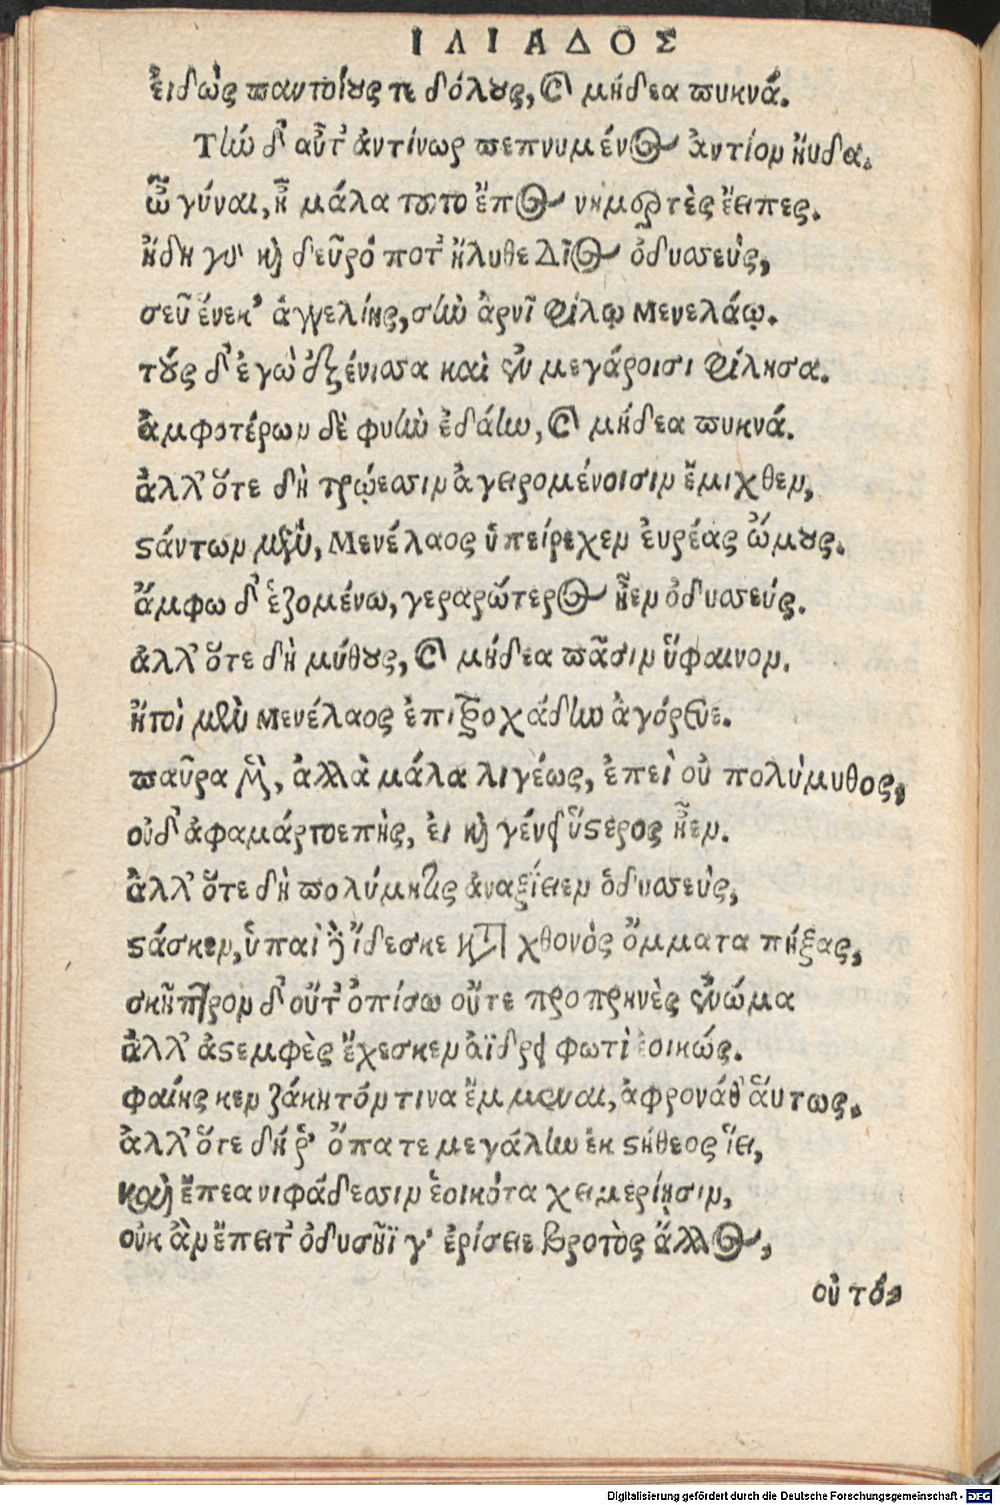 ΙΛΙΑΔΟΣ
ἐιδὼς παντοίους τε δόλους, καὶ μήδεα πυκνά.
Τὴν δ' αὖτ' ἀντίνωρ πεπνυμένος ἀντίον ἤυδα.
ὦ γύναι, ἦ μάλα τοῦτο ἔπος νημερτὲς ἔειπες.
ἤδη γὰρ καὶ δεῦρό ποτ' ἤλυθε Δῖος ὀδυσσεὺς,
σεῦ ἕνεκ' ἀγγελίης, σὺν ἀρηῒ φίλῳ Μενελάῳ.
τοὺς δ' ἐγὼ ἐξένισσα καὶ ἐν μεγάροισι φίλησα.
ἀμφοτέρων δὲ φυὴν ἐδάην, καὶ μήδεα πυκνά.
ἀλλ' ὅτε δὴ τρώεσσιν ἀγειρομένοισιν ἔμιχθεν,
στάντων μὲν, Μενέλαος ὑπείρεχεν ἐυρέας ὤμους.
ἄμφω δ' ἑζομένω, γεραρώτερος ἦεν ὀδυσσεύς.
ἀλλ' ὅτε δὴ μύθους, καὶ μήδεα πᾶσιν ὕφαινον.
ἤτοι μὲν Μενέλαος ἐπιτροχάδην ἀγόρευε.
παῦρα μὲν, ἀλλὰ μάλα λιγέως, ἐπεὶ οὐ πολύμυθος,
οὐδ' ἀφαμάρτοεπὴς, ἐι καὶ γένει ὕστερος ἦεν.
ἀλλ' ὅτε δὴ πολύμητις ἀναξίειεν ὀδυσσεὺς,
στάσκεν, ὑπαὶ δὲ ἴδεσκε κατὰ χθονὸς ὄμματα πήξας,
σκῆπτρον δ' οὔτ' ὀπίσω οὔτε προπρηνὲς ἐνώμα
ἀλλ' ἀστεμφὲς ἔχεσκεν ἀϊδρει φωτὶ ἐοικώς.
φαίης κεν ζάκητόν τινα ἔμμεναι, ἀφρονάθ' ἅυτως.
ἀλλ' ὅτε δή ῥ' ὄπα τε μεγάλην ἐκ στήθεος ἵει,
καὶ ἔπεα νιφάδεσσιν ἐοικότα χειμερίῃσιν,
οὐκ ἂν ἔπειτ' ὀδυσῆϊ γ' ἐρίσειε βροτὸς ἄλλος,
οὐ τό,